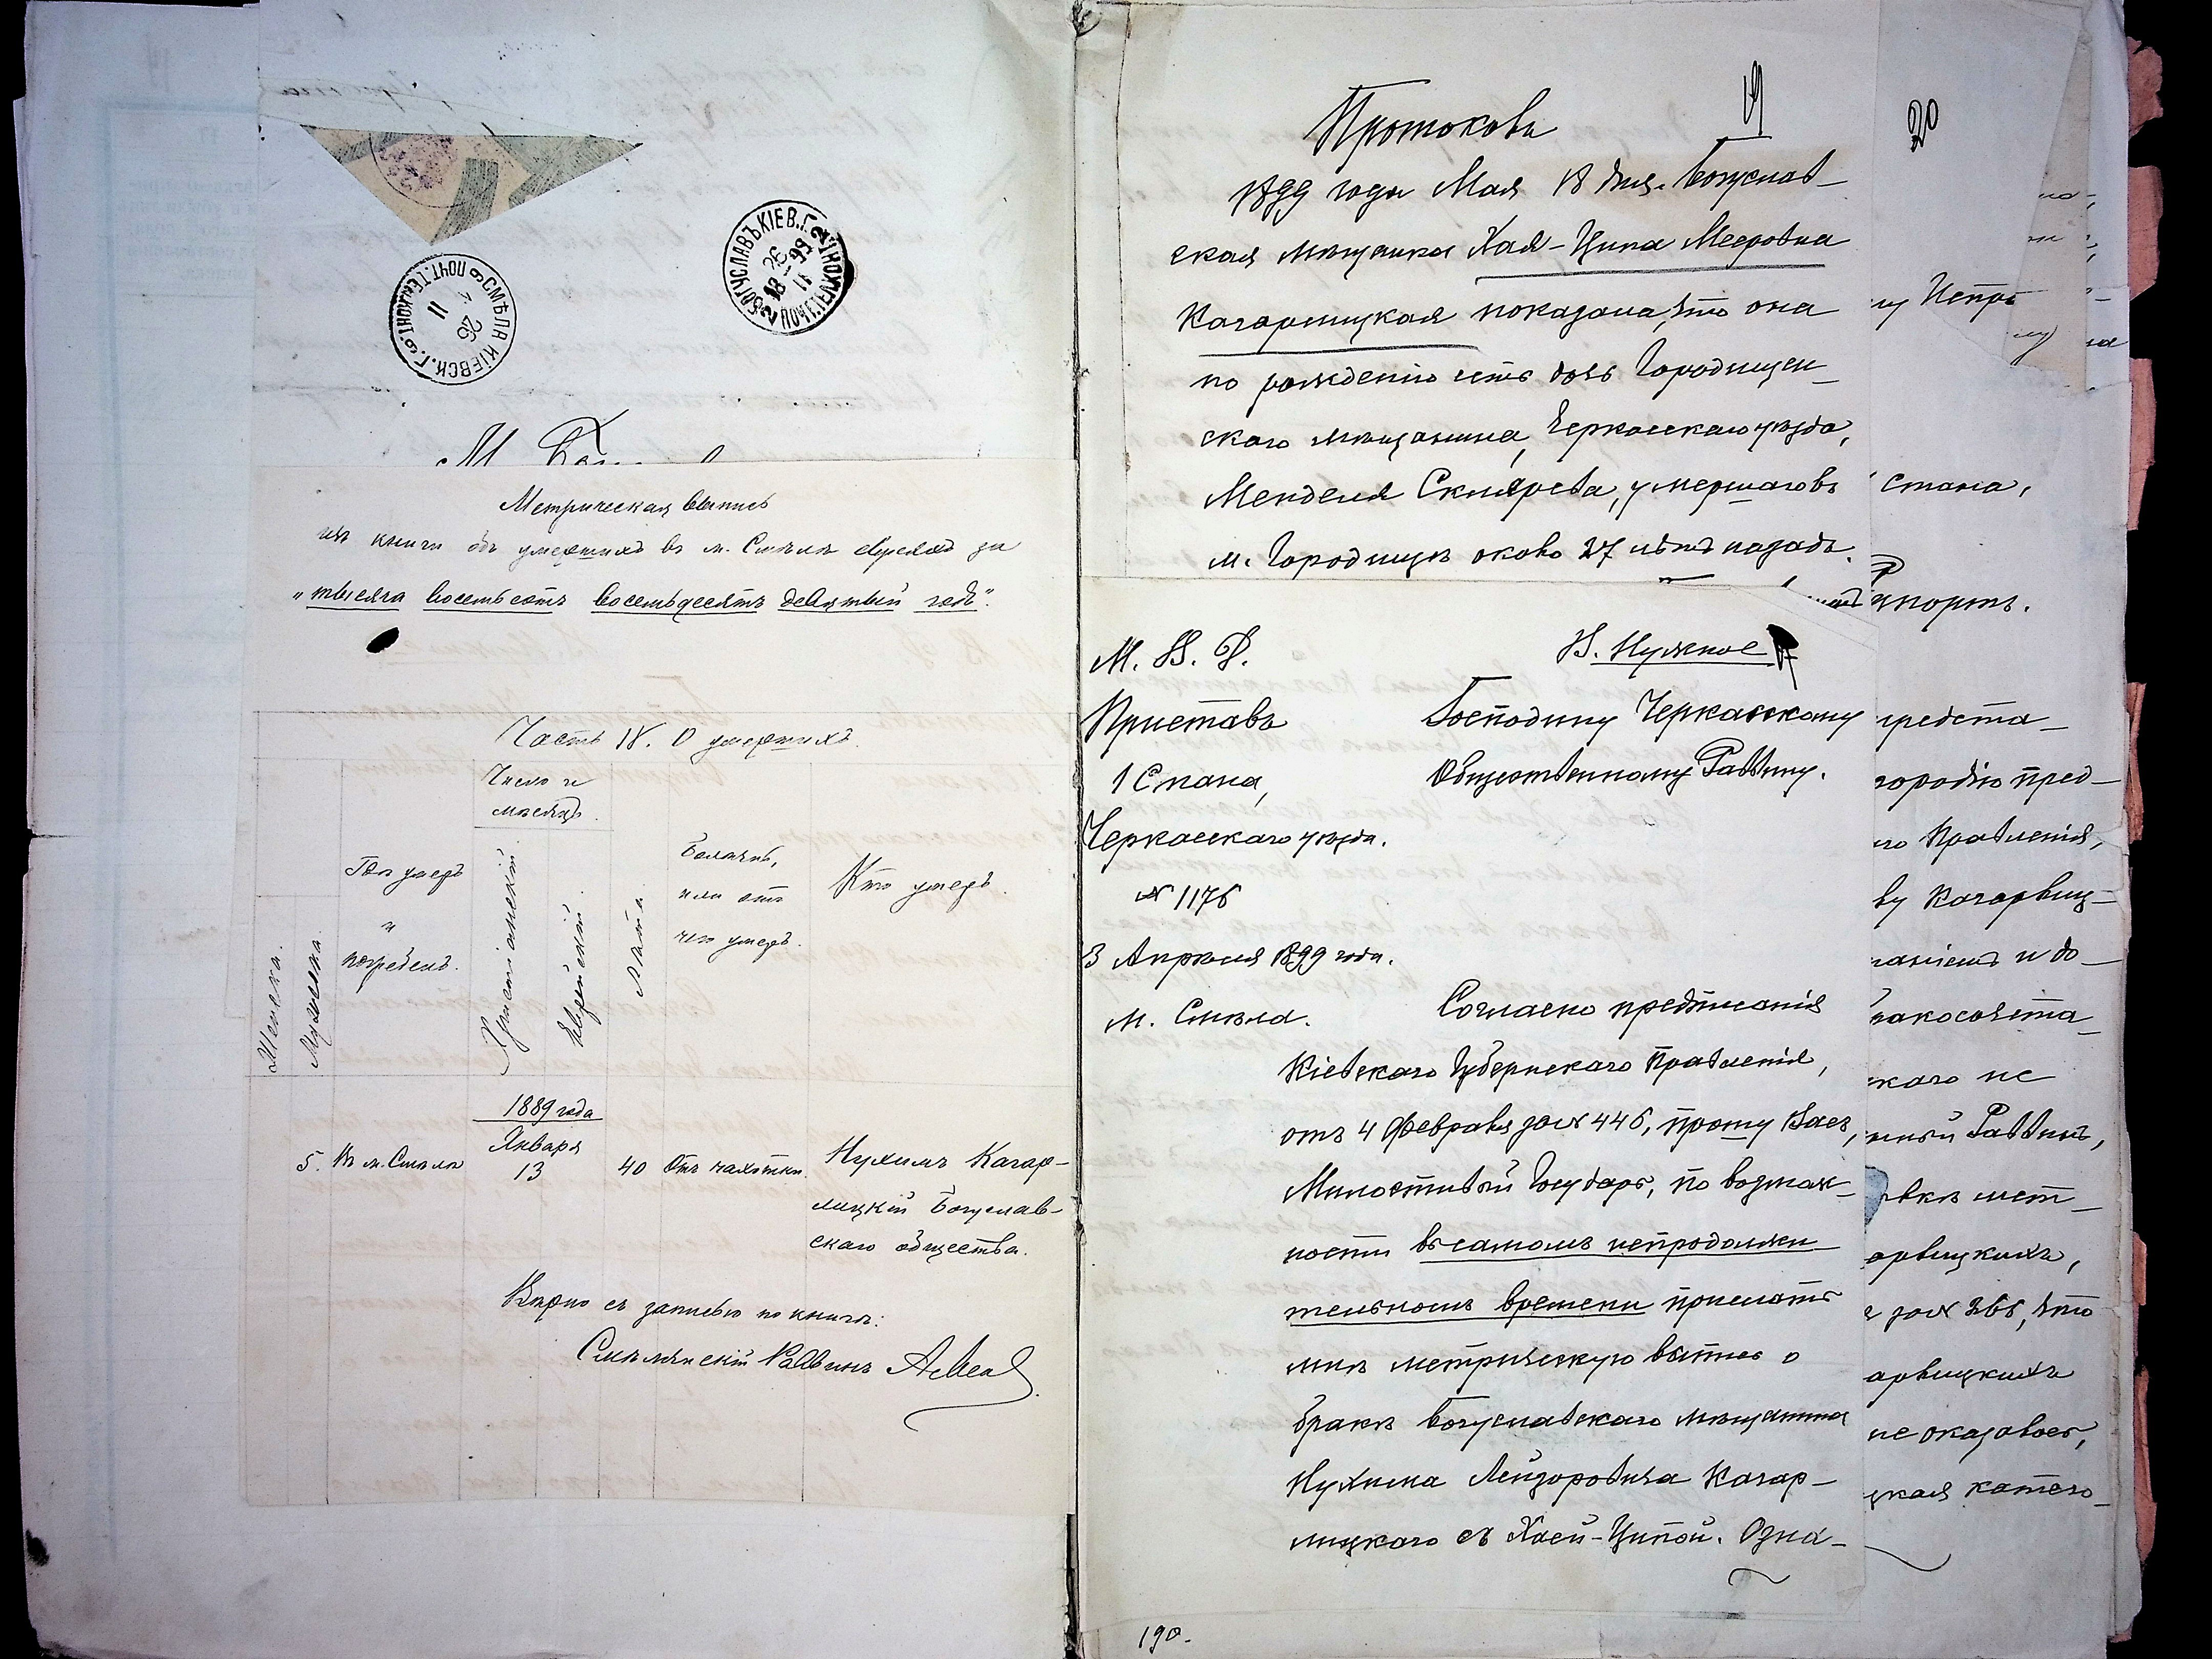 БОГУСЛАВЪ КІЕВ. Г.
ПОЧТ. ТЕЛ. КОНТ.
26
99
11
СМѢЛА КІЕВСК. Г.
ПОЧТ. ТЕЛ. КОНТ.
26
11
Метрическая выпись
изъ книги объ умершихъ въ м. Смѣлѣ евреяхъ за
"тысяча восемьсотъ восемьдесятъ девятый годъ".
Часть IV. О умершихъ.
Женска.
Мужеска.
Гдѣ умеръ
и
погребенъ.
Число и
мѣсяцъ.
Христіанскій.
Еврейскій.
Лѣта.
Болѣзнь,
или отъ
чего умеръ.
Кто умеръ.
1889 года
5. Въ м. Смѣлѣ Января 13 40 Отъ чахотки. Нухимъ Кагар-
лицкій Богуслав-
скаго общества.
Вѣрно съ записью по книгѣ:
Смѣлянскій Раввинъ
19
Протоколъ
1899 года Мая 18 дня. Богуслав-
ская мѣщанка Хая-Ципа Мееровна
Кагарлицкая показала, что она
по рожденію есть дочь Городищен-
скаго мѣщанина, Черкасскаго уѣзда,
Менделя Склярева, умершаго въ
м. Городищѣ около 27 лѣтъ назадъ.
М. В. Д.
Приставъ
1 Стана,
Черкасскаго уѣзда.
№ 1176
3 Апрѣля 1899 года.
м. Смѣла.
В. Нужное
Господину Черкасскому
Общественному Раввину.
Согласно предписанія
Кіевскаго Губернскаго Правленія,
отъ 4 Февраля за № 446, прошу Васъ,
Милостивый Государь, по возмож-
ности въ самомъ непродолжи-
тельномъ времени прислать
мнѣ метрическую выпись о
бракѣ Богуславскаго мѣщанина
Нухима Лейзоровича Кагар-
лицкаго съ Хаей-Ципой. Озна-
190.
20
Стана,
рапортъ.
предста-
городію пред-
го Правленія,
ву Кагарлиц-
наніемъ и до-
ракосочета-
скаго не
нный Раввинъ,
овкѣ мет-
арлицкихъ,
за № 265, что
арлицкихъ
не оказалось,
цкая катего-